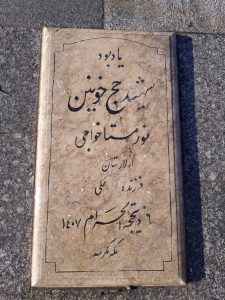 یادبود
شهید حج خونین
نورستا خواجی
از لارستان
فرزند علی
۶ ذیحجة الحرام ۱۴۰۷
مکه مکرمه